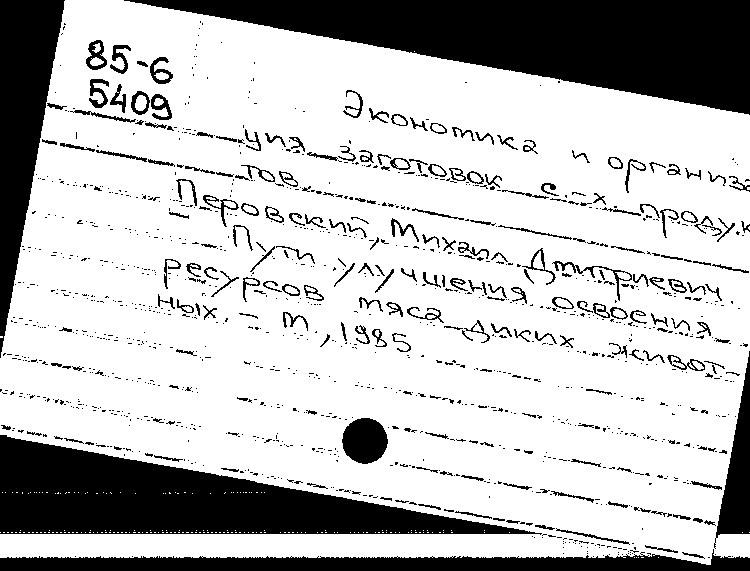 85-6
5409
Экономика и организа
ция заготовок с.-х. продук
тов
Перовский, Михаил Дмитриевич.
Пути улучшения освоения
ресурсов мяса диких живот-
ных. – М., 1985